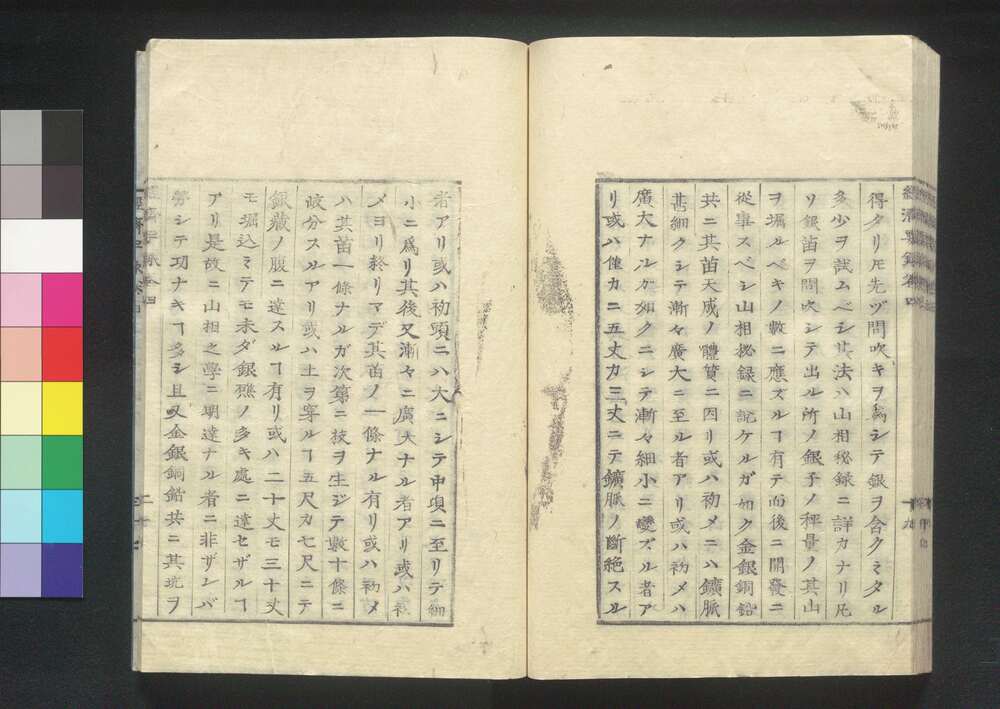 得タリ𪜈先ヅ問吹キヲ爲シテ銀ヲ含クミタル
多少ヲ試ムベシ其法ハ山相秘録ニ詳カナリ凡
ソ銀笛ヲ問吹シテ出ル所ノ銀子ノ秤量ノ其山
ヲ堀ルベキノ數ニ應ズルヿ有テ而後ニ開發ニ
從事スベシ山相秘録ニ記ケルガ如ク金銀銅鉛
共ニ其苗天成ノ體質ニ因リ或ハ初メニハ鑛脈
甚細クシテ漸々廣大ニ至ル者アリ或ハ初メハ
廣大ナルガ如クニシテ漸々細小ニ變ズル者ア
リ或ハ僅カニ五丈カ三丈ニテ鑛脈ノ斷絶スル
者アリ或ハ初頭ニハ大ニシテ中頃ニ至リテ細
小ニ爲リ其後又漸々ニ廣大ナル者アリ或ハ初
メヨリ終リマデ其苗ノ一條ナル有リ或ハ初メ
ハ其苗一條ナルガ次第ニ枝ヲ生ジテ數十條ニ
岐分スルアリ或ハ土ヲ穿ルヿ五尺カ七尺ニテ
銀藏ノ腹ニ達スルヿ有リ或ハ二十丈モ三十丈
モ堀込ミテモ未ダ銀礁ノ多キ處ニ達セザルヿ
アリ是故ニ山相之學ニ明達ナル者ニ非ザレバ
勞シテ功ナキヿ多シ且又金銀銅鉛共ニ其坑ヲ